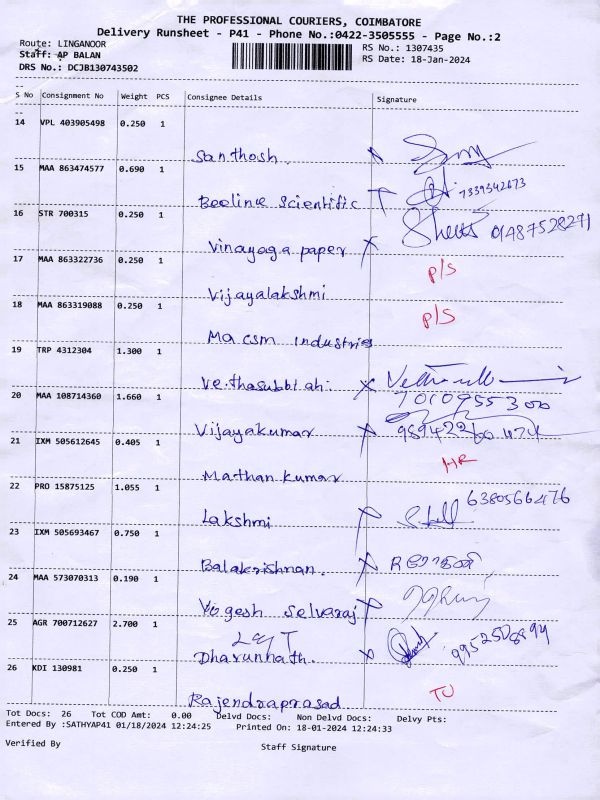 THE PROFESSIONAL COURIERS, COIMBATORE
Delivery Runsheet - P41 - Phone No.:0422-3505555 - Page No.:2
Route: LINGANOOR
RS No.: 1307435
Staff: AP BALAN
RS Date: 18-Jan-2024
DRS No.: DCJB130743502
S No Consignment No Weight PCS Consignee Details Signature
14 VPL 403905498 0.250 1
Santhosh.
15 MAA 863474577 0.690 1
Beeline Scientific 7339342673
16 STR 700315 0.250 1
01487528271
Vinayaga paper
17 MAA 863322736 0.250 1
P/S
Vijayalakshmi
18 MAA 863319088 0.250 1
P/S
Ma csm industries
19 TRP 4312304 1.300 1
Vethasubbiah.
20 MAA 108714360 1.660 1
Vijayakumar
21 IXM 505612645 0.405 1
HR
Mathan kumar
22 PRO 15875125 1.055 1
6380566476
Lakshmi
23 IXM 505693467 0.750 1
Balakrishnan.
24 MAA 573070313 0.190 1
Yogesh Selvaraj
25 AGR 700712627 2.700 1
Dharunnath.
26 KDI 130981 0.250 1
Rajendraprasad
Tot Docs: 26 Tot COD Amt: 0.00 Delvd Docs: Non Delvd Docs: Delvy Pts:
Entered By :SATHYAP41 01/18/2024 12:24:25 Printed On: 18-01-2024 12:24:33
Verified By Staff Signature